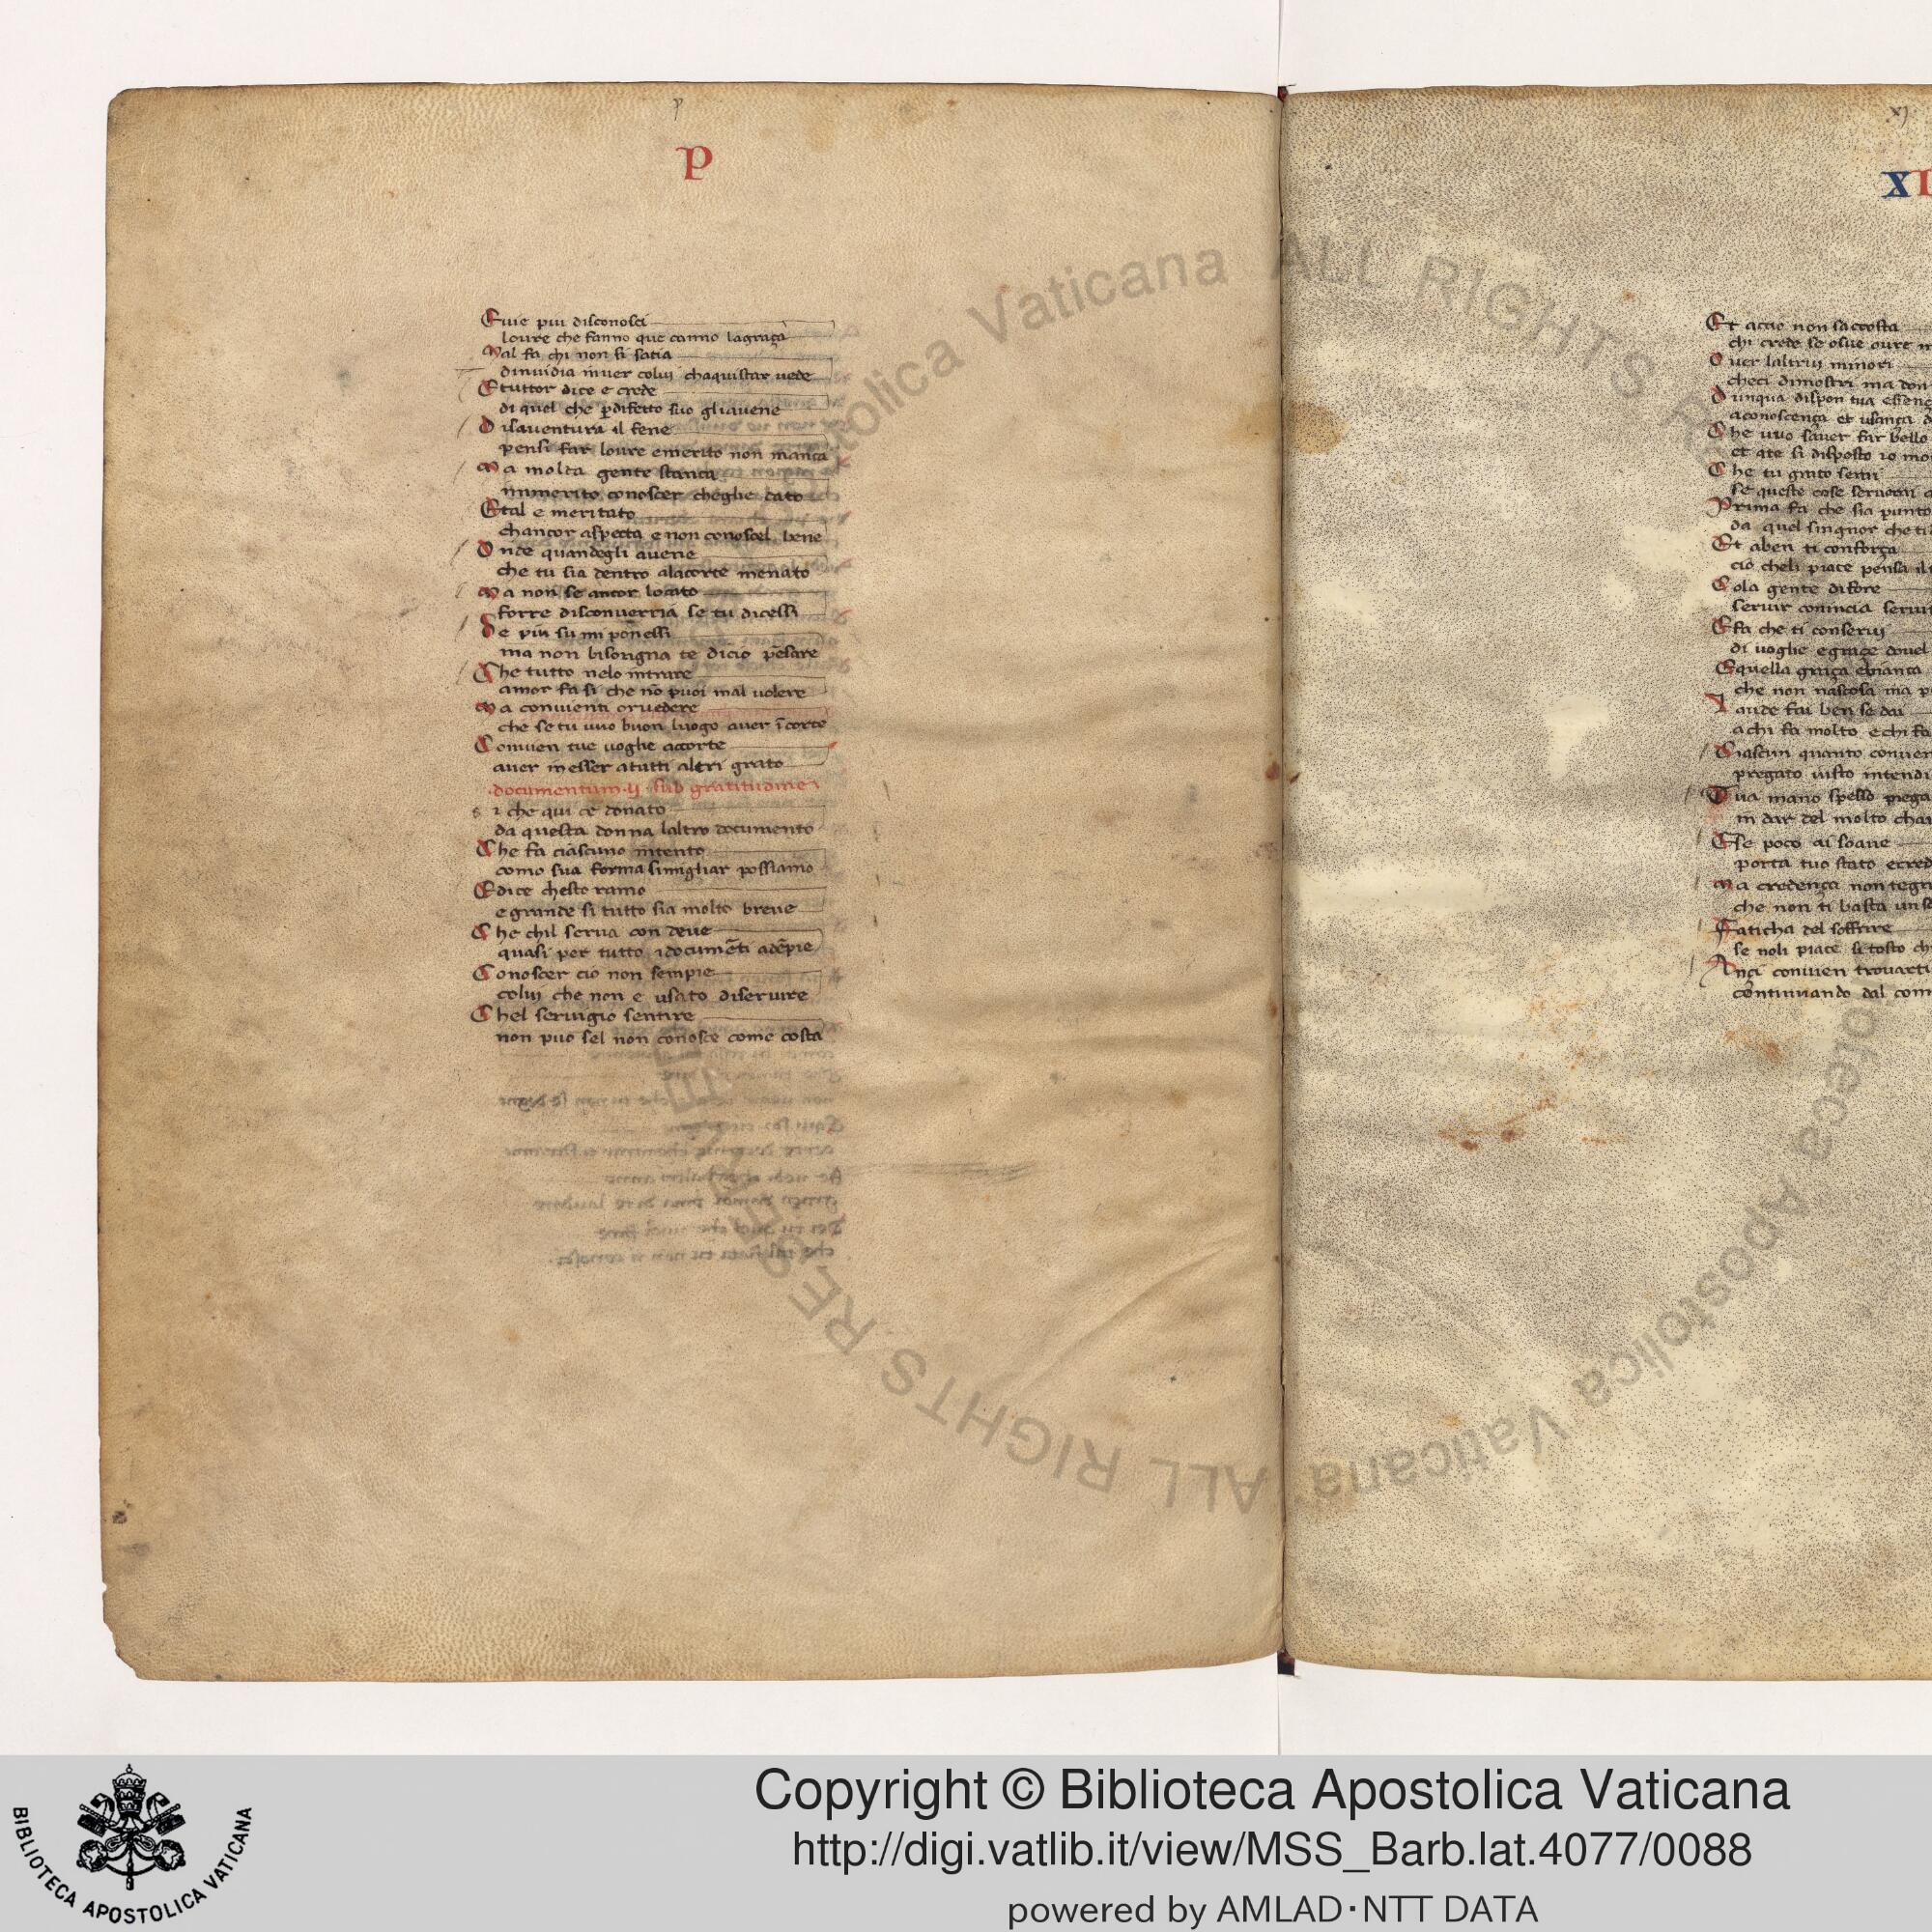 p
P
Evie piu disconosci
loure che fanno que canno lagraça
Mal fa chi non si satia
dinuidia inuer colui chaquistar uede
Etuttor dice e crede
di quel che p difetto suo gliauene
Disauentura il tene
pensi far loure emerito non manca
Ma molta gente stanca
inmerito conoscer cheglie dato
Etal e meritato
chancor aspecta e non conoscel bene
Onde quandegli auene
che tu sia dentro alacorte menato
Ma non se ancor locato
forte disconuerria se tu dicessi
De piu su mi ponessi
ma non bisongna te dicio pēsare
Che tutto nelo intrare
amor fa si che nō puoi mal uolere
Ma conuienti oruedere
che se tu uuo buon luogo auer ī corte
Conuien tue uoghe accorte
auer in esser atutti altri grato
.documentum.ij. sub gratitudine
si che qui ce donato
da questa donna laltro documento
Che fa ciascuno intento
como sua forma simigliar possiamo
Edice chesto ramo
e grande si tutto sia molto breue
Che chil serua con deue
quasi per tutto i documēti adēpie
Conoscer cio non sempie
colui che non e usato diseruire
Chel seruigio sentire
non puo sel non conosce come costa
xj
XI
Et accio non saccosta
chi crede se osue oure
Ouer laltrui minori
checi dimostri ma don
Dunqua dispon tua
aconoscença et usança d
Che uuo sauer far bello
et ate si disposto io mo
Che tu grato serui
se queste cose seruerai
Prima fa che sia punto
da quel singnor che ti
Et aben ti conforça
cio cheli piace pensa il
Cola gente difore
seruir comincia serui
Efa che ti conserui
di uoghe egraçe douel
Equella graça
che non nascosa ma p
Laude fai ben se dai
achi fa molto echi fa
Ciascun quanto conuen
pregato uisto intendi
Tua mano spesso piega
in dar del molto cha
Ese poco ai soaue
porta tuo stato ecred
Ma credença non tegn
che non ti basta un
Faticha del soffrire
se noli piace si tosto ch
Ançi conuien trouarti
continuando dal com
Vaticana ALL RIGHTS
Apostolica Vaticana ALL RIGHTS RESERVED
BIBLIOTECA APOSTOLICA VATICANA
Copyright © Biblioteca Apostolica Vaticana
http://digi.vatlib.it/view/MSS_Barb.lat.4077/0088
powered by AMLAD·NTT DATA